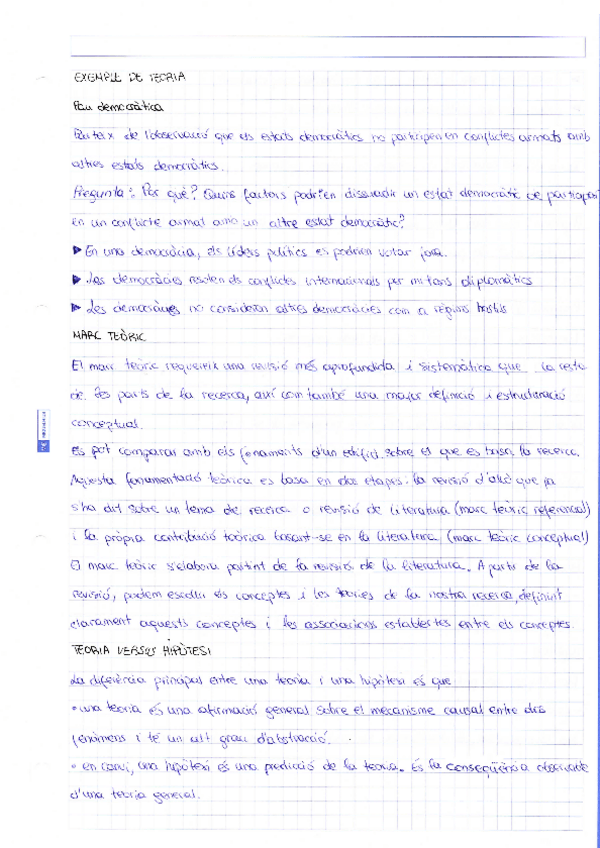 EXEMPLE DE TEORIA
Pau democràtica
Parteix de l'observació que els estats democràtics no participen en conflictes armats amb
altres estats democràtics.
Pregunta: Per què? Quins factors podrien dissuadir un estat democràtic de participar
en un conflicte armat amb un altre estat democràtic?
▶ En una democràcia, els líders polítics es podrien votar fora.
▶ Les democràcies resolen els conflictes internacionals per mitjans diplomàtics
▶ Les democràcies no consideren altres democràcies com a règims hostils
MARC TEÒRIC
El marc teòric requereix una revisió més aprofundida i sistemàtica que la resta
de les parts de la recerca, així com també una major definició i estructuració
conceptual.
Es pot comparar amb els fonaments d'un edifici sobre el que es basa la recerca.
Aquesta fonamentació teòrica es basa en dos etapes: la revisió d'allò que ja
s'ha dit sobre un tema de recerca o revisió de literatura (marc teòric referencial)
i la pròpia contribució teòrica basant-se en la literatura (marc teòric conceptual)
El marc teòric s'elabora partint de la revisió de la literatura. A partir de la
revisió, podem escollir els conceptes i les teories de la nostra recerca, definint
clarament aquests conceptes i les associacions establertes entre els conceptes.
TEORIA VERSUS HIPÒTESI
La diferència principal entre una teoria i una hipòtesi és que
• una teoria és una afirmació general sobre el mecanisme causal entre dos
fenòmens i té un alt grau d'abstracció.
• en canvi, una hipòtesi és una predicció de la teoria. És la conseqüència observable
d'una teoria general.